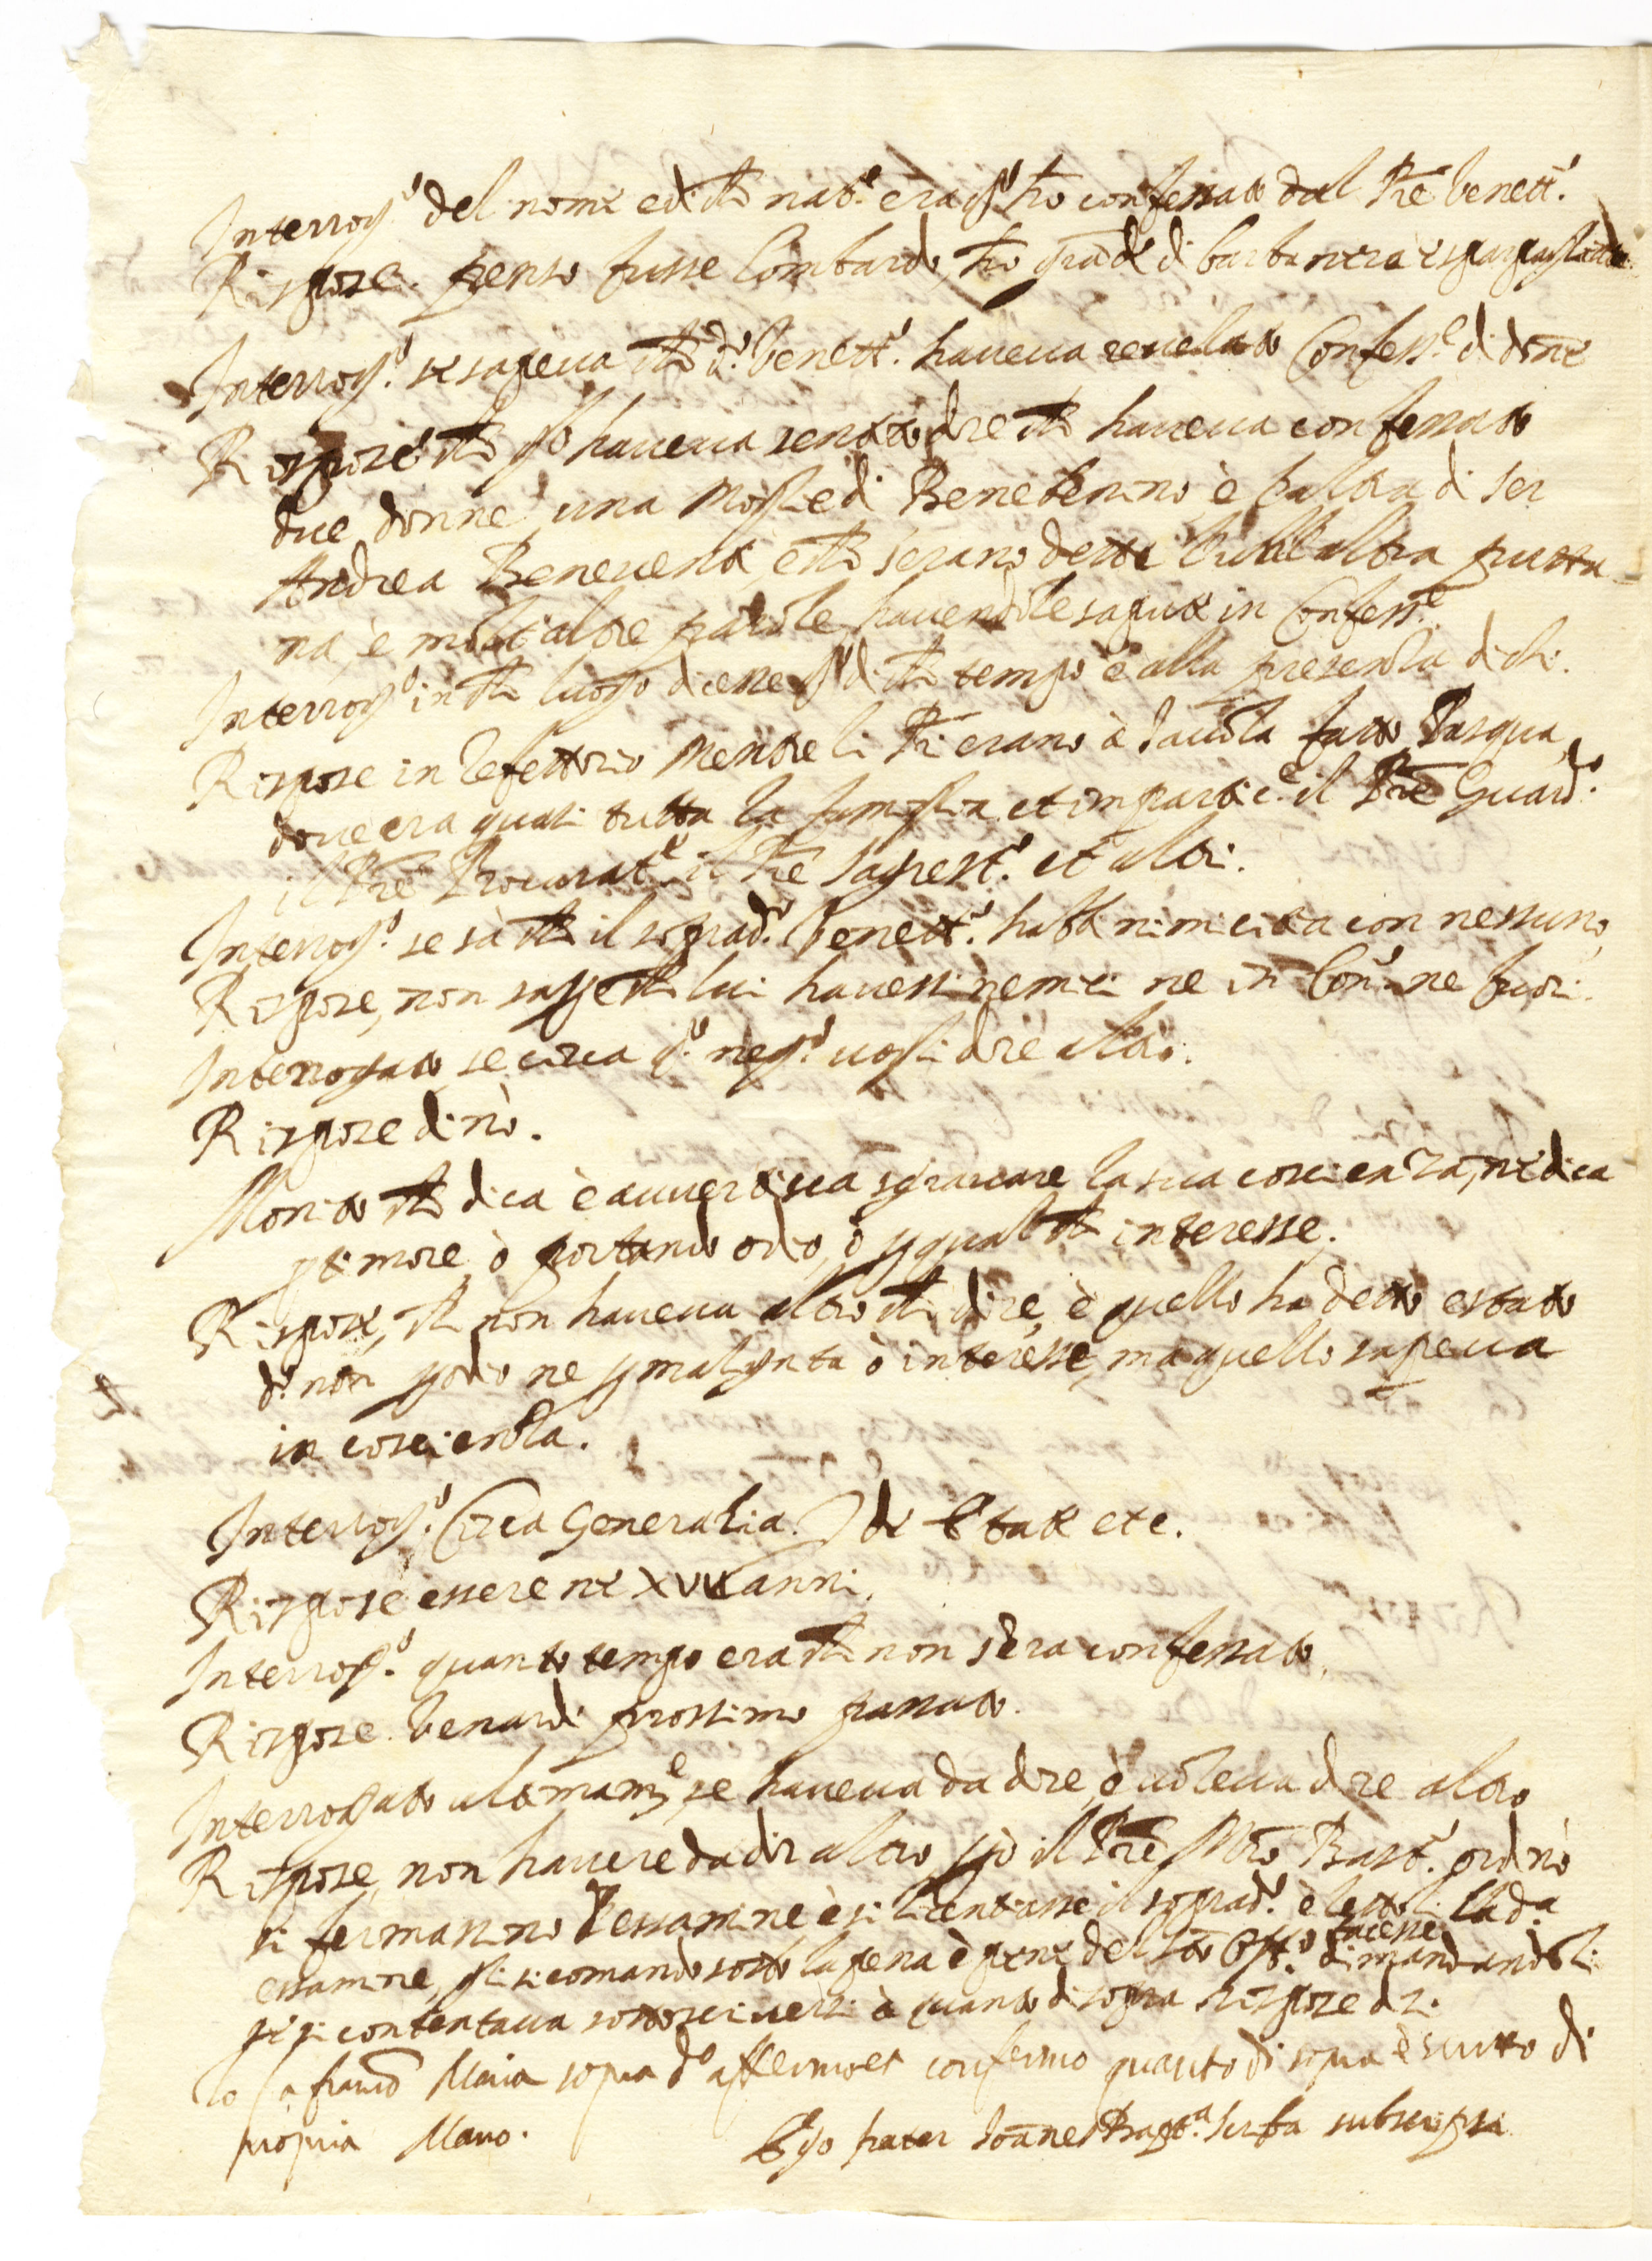 Interrog.º del nome e di che nat.e era q.º h̃o confessato dal Prẽ benett.º
Rispose. penso fusse lombardo, h̃o grãde di barba nera
Interrog.º se sapeva che d.º benett.º haveva revelato Confess.e di dõne
Rispose che gl'haveva sentito dire che haveva confessato
due donne una Moglie di Bene è l'altra di ser
Andrea Beneventi, e che s'erano dette l'altra putta-
na, è molt'altre parole havendole sapute in Confess.e
Interrog.º in che luogo dicesse q.º di che tempo è alla presentia di chi.
Rispose in Refettorio mentre li Pri erano à tavola fatto Pasqua,
dove era quasi tutta la famiglia et impartic.e il Prẽ Guard.º
il Prẽ Procurat.e il Prẽ Sagrest.º et altri.
Interrog.º se sà che il soprad.º benett.º habbi nimicitia con nessuno,
Rispose, non sapere che lui havessi nemici ne in Con.º ne fuori.
Interrogato se circa q.º neg.º vogli dire altro.
Rispose di nò.
Monito che dica è avvertisca sgravare la sua coscienza, ne dica
p timore, ò portando odio, ò p qualche interesse.
Rispose, che non haveva altro che dire, è quello ha detto e stato
d.º non p odio ne p malignta ò interesse, ma quello sapeva
in coscientia.
Interrog.º Circa Generalia. de etate etc.
Rispose essere ne anni.
Interrog.º quanto tempo era che non s'era confessato.
Rispose. Venardi prossimo passato.
Interrogato ultimam.e se haveva da dire, ò voleva dire altro
Rispose, non havere da dir altro, p ciò il Prẽ Mrõ Bast.º ordinò
si fermassino l'essamine è si licentiasse il soprad.º è lettoli la d.a
essamine, gli si comandò sotto la pena è pene del Sto Off.º tacesse dimandandoli
se si contentava sottoscriversi à quanto di sopra. Rispose di sì.
Io fra franc.º Maria sopra d.º affermo et confermo quanto di sopra è scritto di
propria Mano. Ego frater Joãnes Bapt.a subscripsi